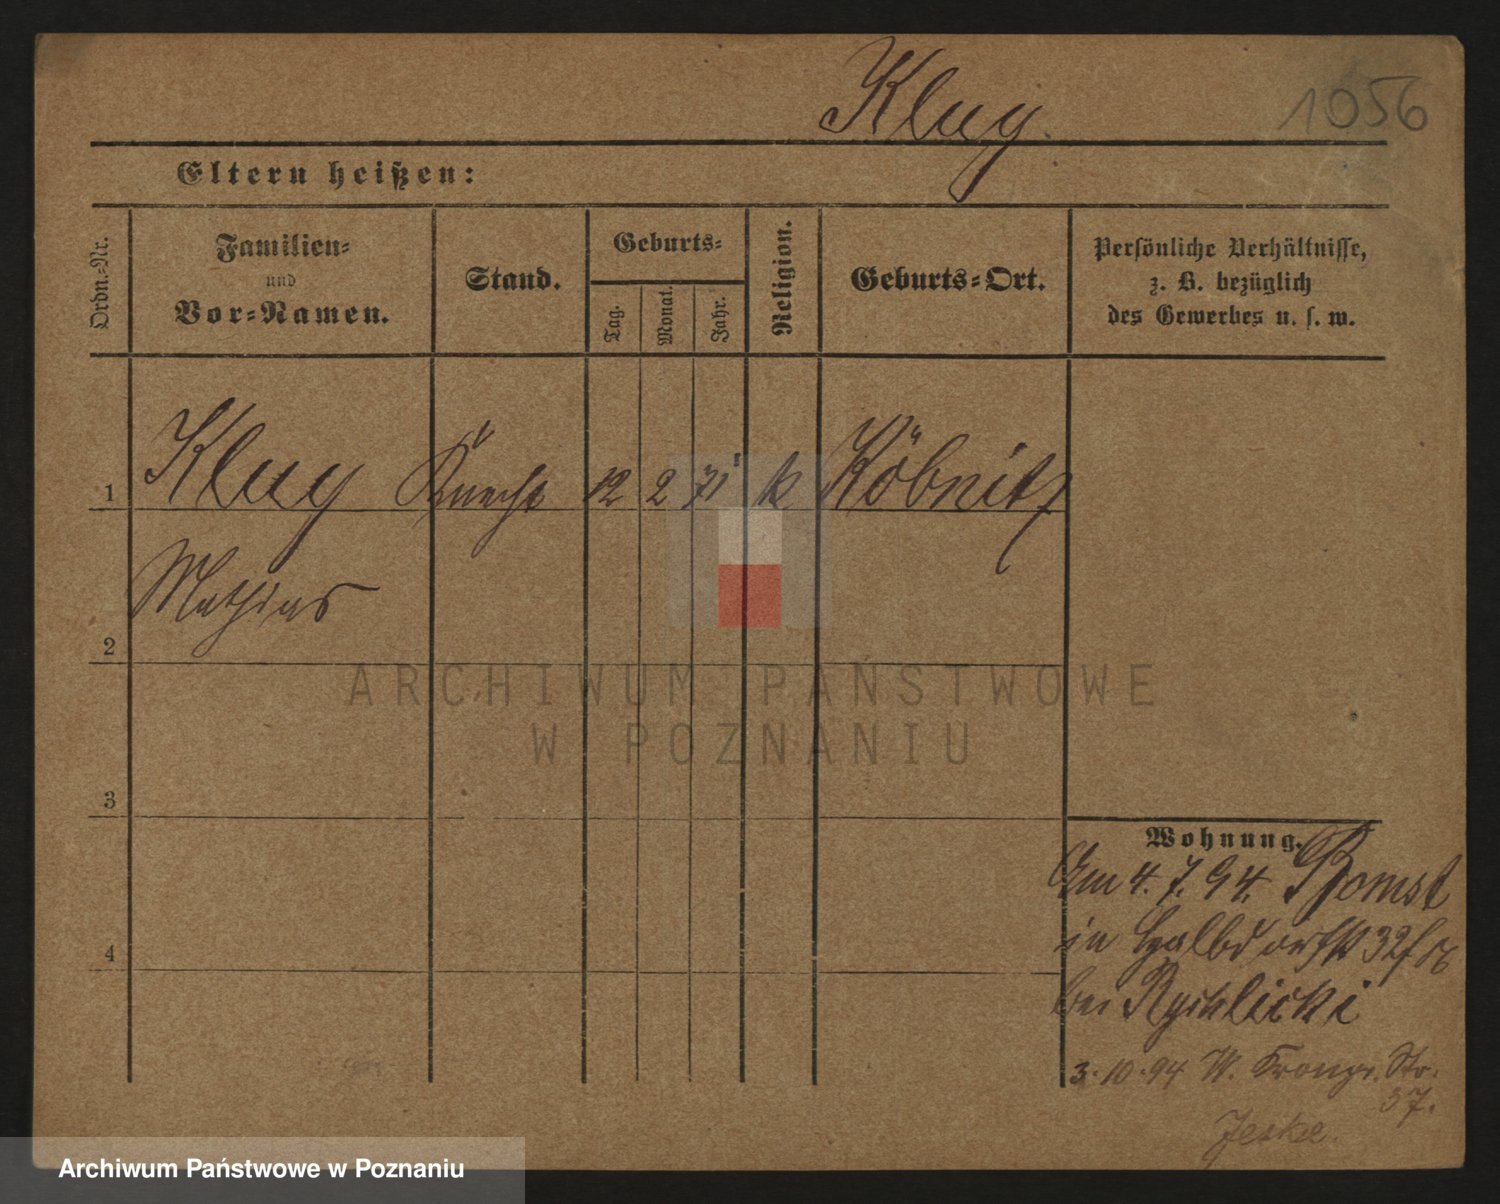 Klug.
1056
Eltern heißen:
Ordn.-Nr.
Familien-
und
Vor-Namen.
Stand.
Geburts-
Tag.
Monat.
Jahr.
Religion.
Geburts-Ort.
Persönliche Verhältnisse,
z. B. bezüglich
des Gewerbes u. s. w.
1 Klug Knecht 12 2 71 k Köbnitz
Mathias
2
3
4
Wohnung.
Am 4. 7. 94. Bomst
in Halbdorfst 32
bei Rychlicki
3.10.94 W. Kronpr. Str.
37.
Jeske.
ARCHIWUM PAŃSTWOWE
W POZNANIU
Archiwum Państwowe w Poznaniu